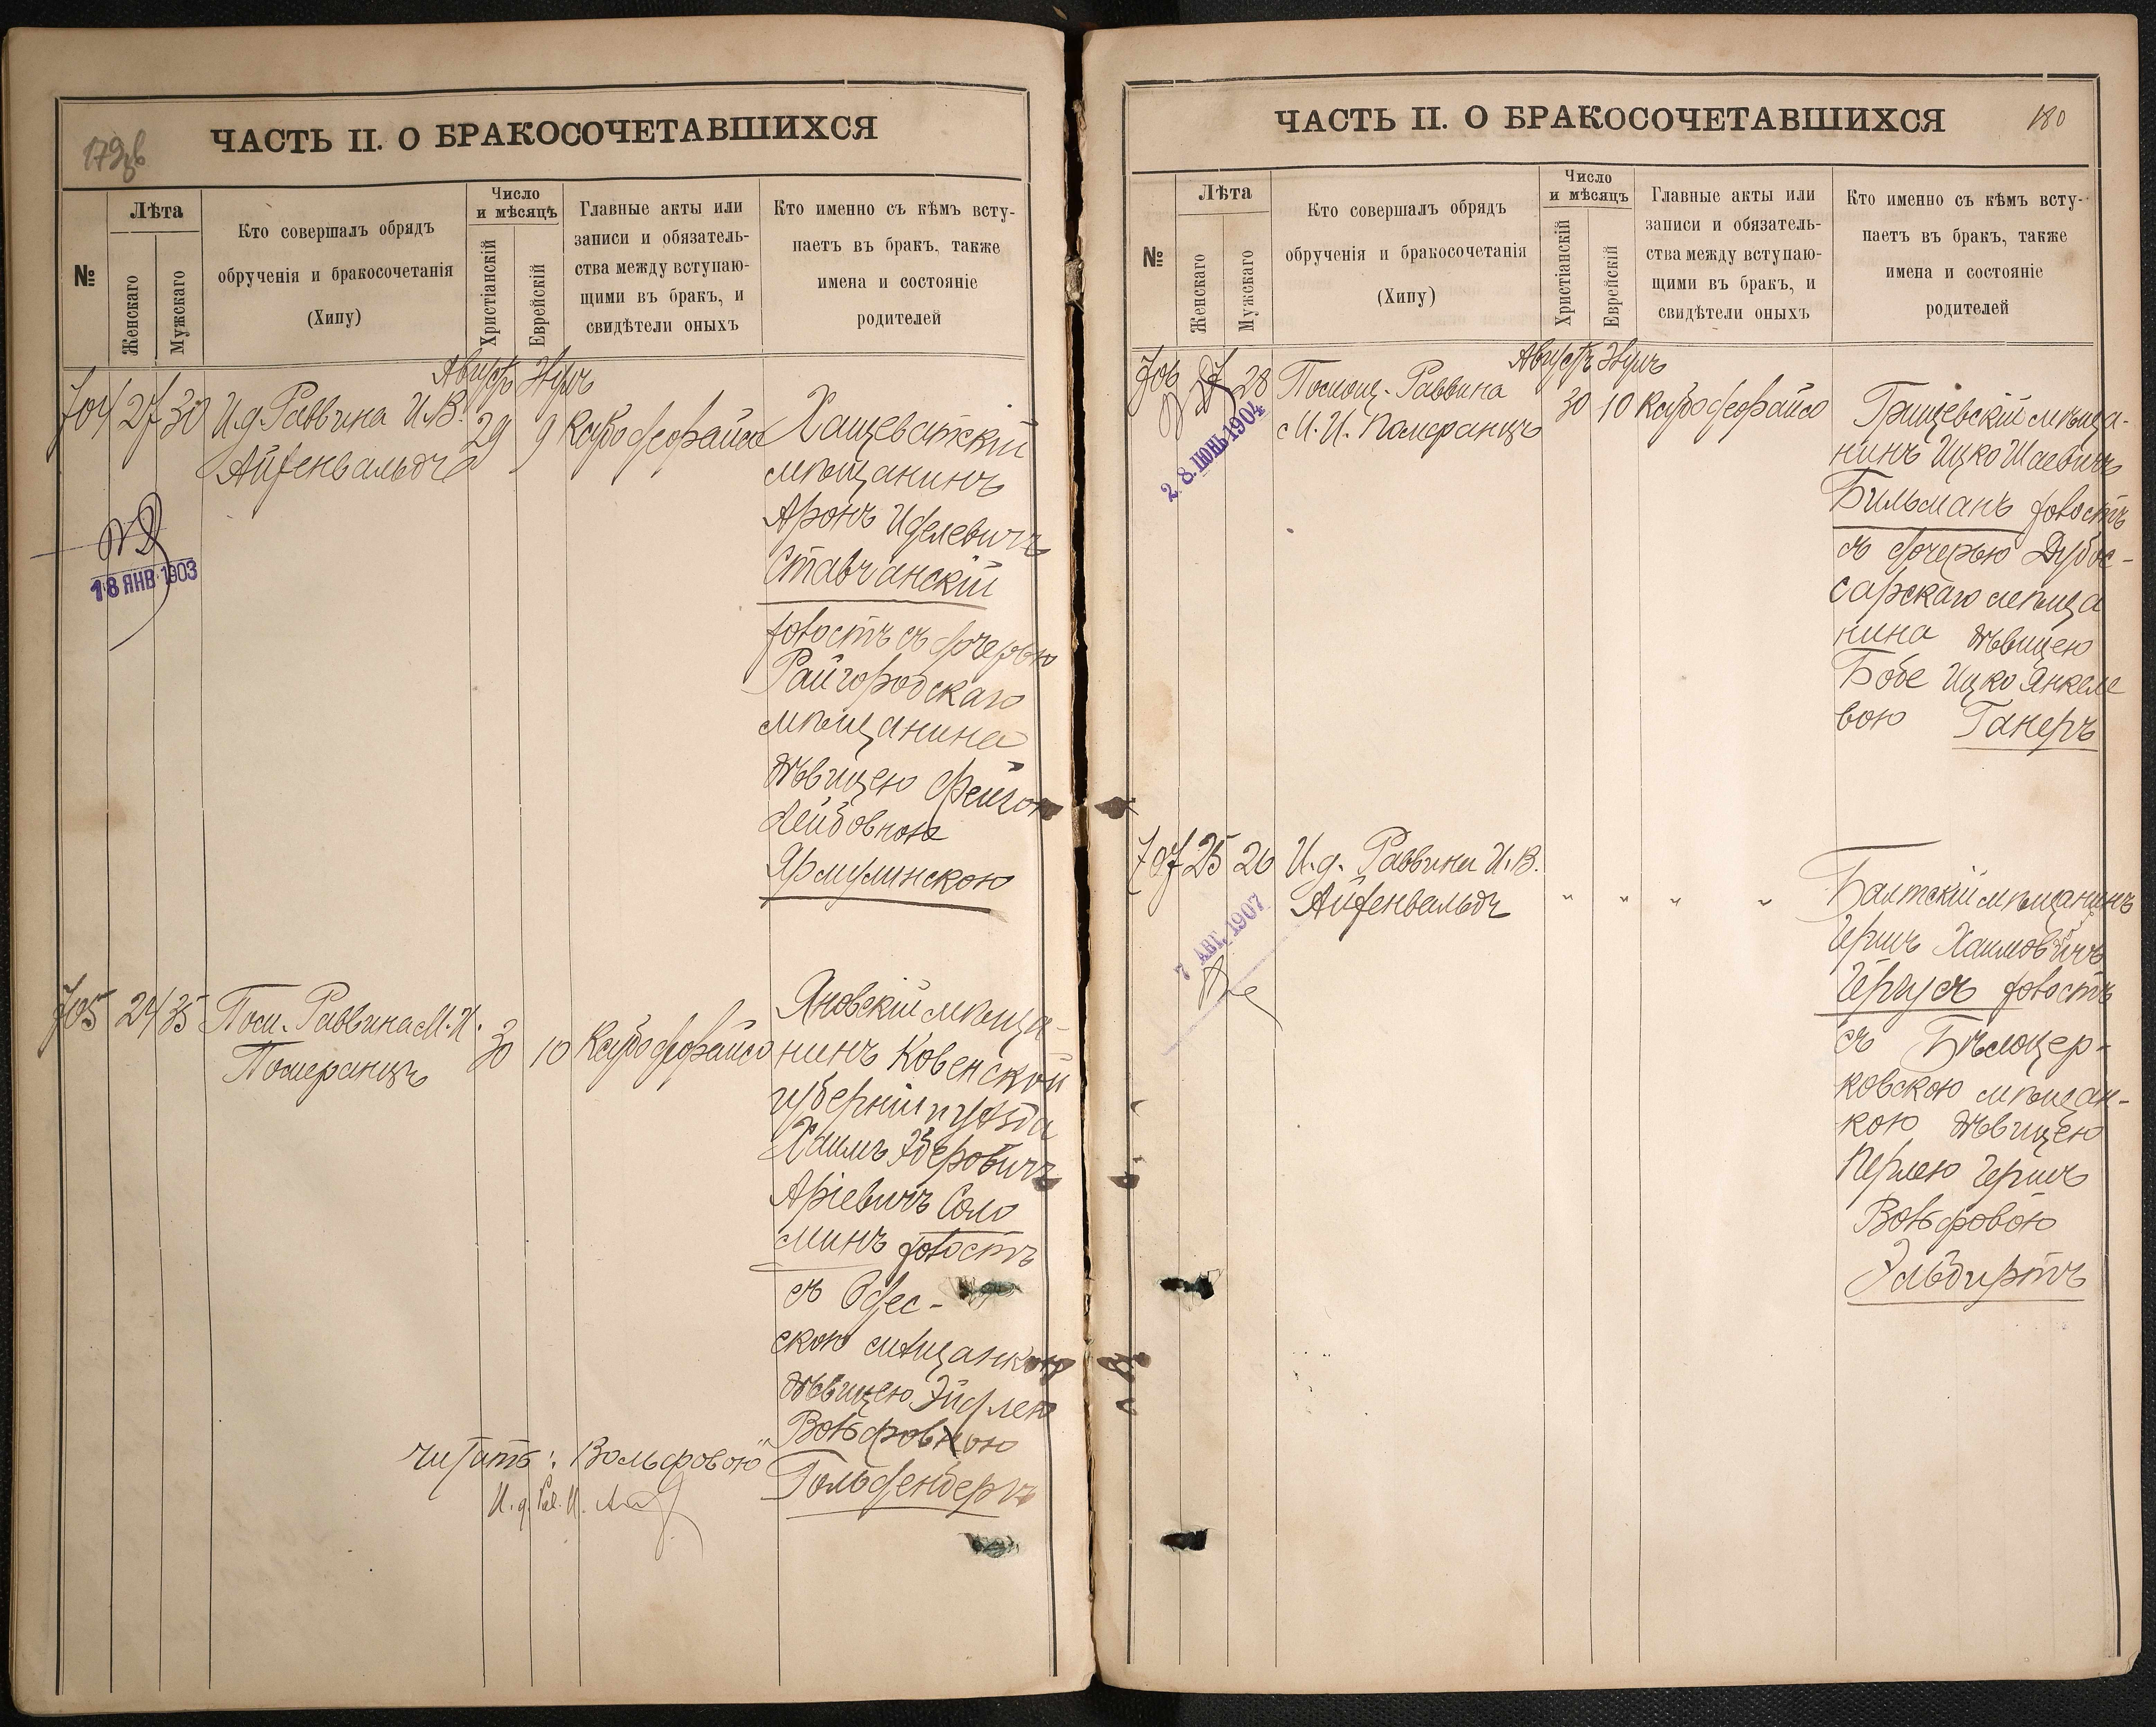 179об
ЧАСТЬ II. О БРАКОСОЧЕТАВШИХСЯ
№
Лѣта
Женскаго
Мужскаго
Кто совершалъ обрядъ
обрученія и бракосочетанія
(Хипу)
Число
и мѣсяцъ
Христіанскій
Еврейскій
Главные акты или
записи и обязатель-
ства между вступаю-
щими въ бракъ, и
свидѣтели оныхъ
Кто именно съ кѣмъ всту-
паетъ въ бракъ, также
имена и состояніе
родителей
Августъ
704 27 30 И.д. Раввина И.В.
Айзенвальдъ
29 9
Хащеватскій
мѣщанинъ
Аронъ Иделевичъ
Ставчанскій
холостъ съ дочерью
Райгородскаго
мѣщанина
дѣвицею Фейгою
Лейбовною
Ярмулинскою
18 ЯНВ 1903
705 24 35 Пом. Раввина М.И.
Померанцъ
30 10
Яновскій мѣща-
нинъ Ковенской
губерніи и уѣзда
Хаимъ
Аріевичъ Соло
минъ холостъ
съ Одес-
скою мѣщанкою
дѣвицею Эйдлею
Вольфовною
Гольденбергъ
читать: "Вольфовою"
И.д. Рав. И.
180
ЧАСТЬ II. О БРАКОСОЧЕТАВШИХСЯ
№
Лѣта
Женскаго
Мужскаго
Кто совершалъ обрядъ
обрученія и бракосочетанія
(Хипу)
Число
и мѣсяцъ
Христіанскій
Еврейскій
Главные акты или
записи и обязатель-
ства между вступаю-
щими въ бракъ, и
свидѣтели оныхъ
Кто именно съ кѣмъ всту-
паетъ въ бракъ, также
имена и состояніе
родителей
Августъ
706 27 28 Помощ. Раввина
М.И. Померанцъ
30 10
Грищевскій мѣща-
нинъ Ицко Шаевичъ
Бильманъ холостъ
съ дочерью Дубос-
сарскаго мѣща
нина дѣвицею
Бобе Ицко Янкеле
вою Ганеръ
2.8. ІЮНЬ 1904
707 25 26 И.д. Раввина И.В.
Айзенвальдъ
" " " "
Балтскій мѣщанинъ
Гершъ Хаимовичъ
холостъ
съ Бѣлоцер-
ковскою мѣщан-
кою дѣвицею
Перлею Гершъ
Вольфовою
7 АВГ. 1907